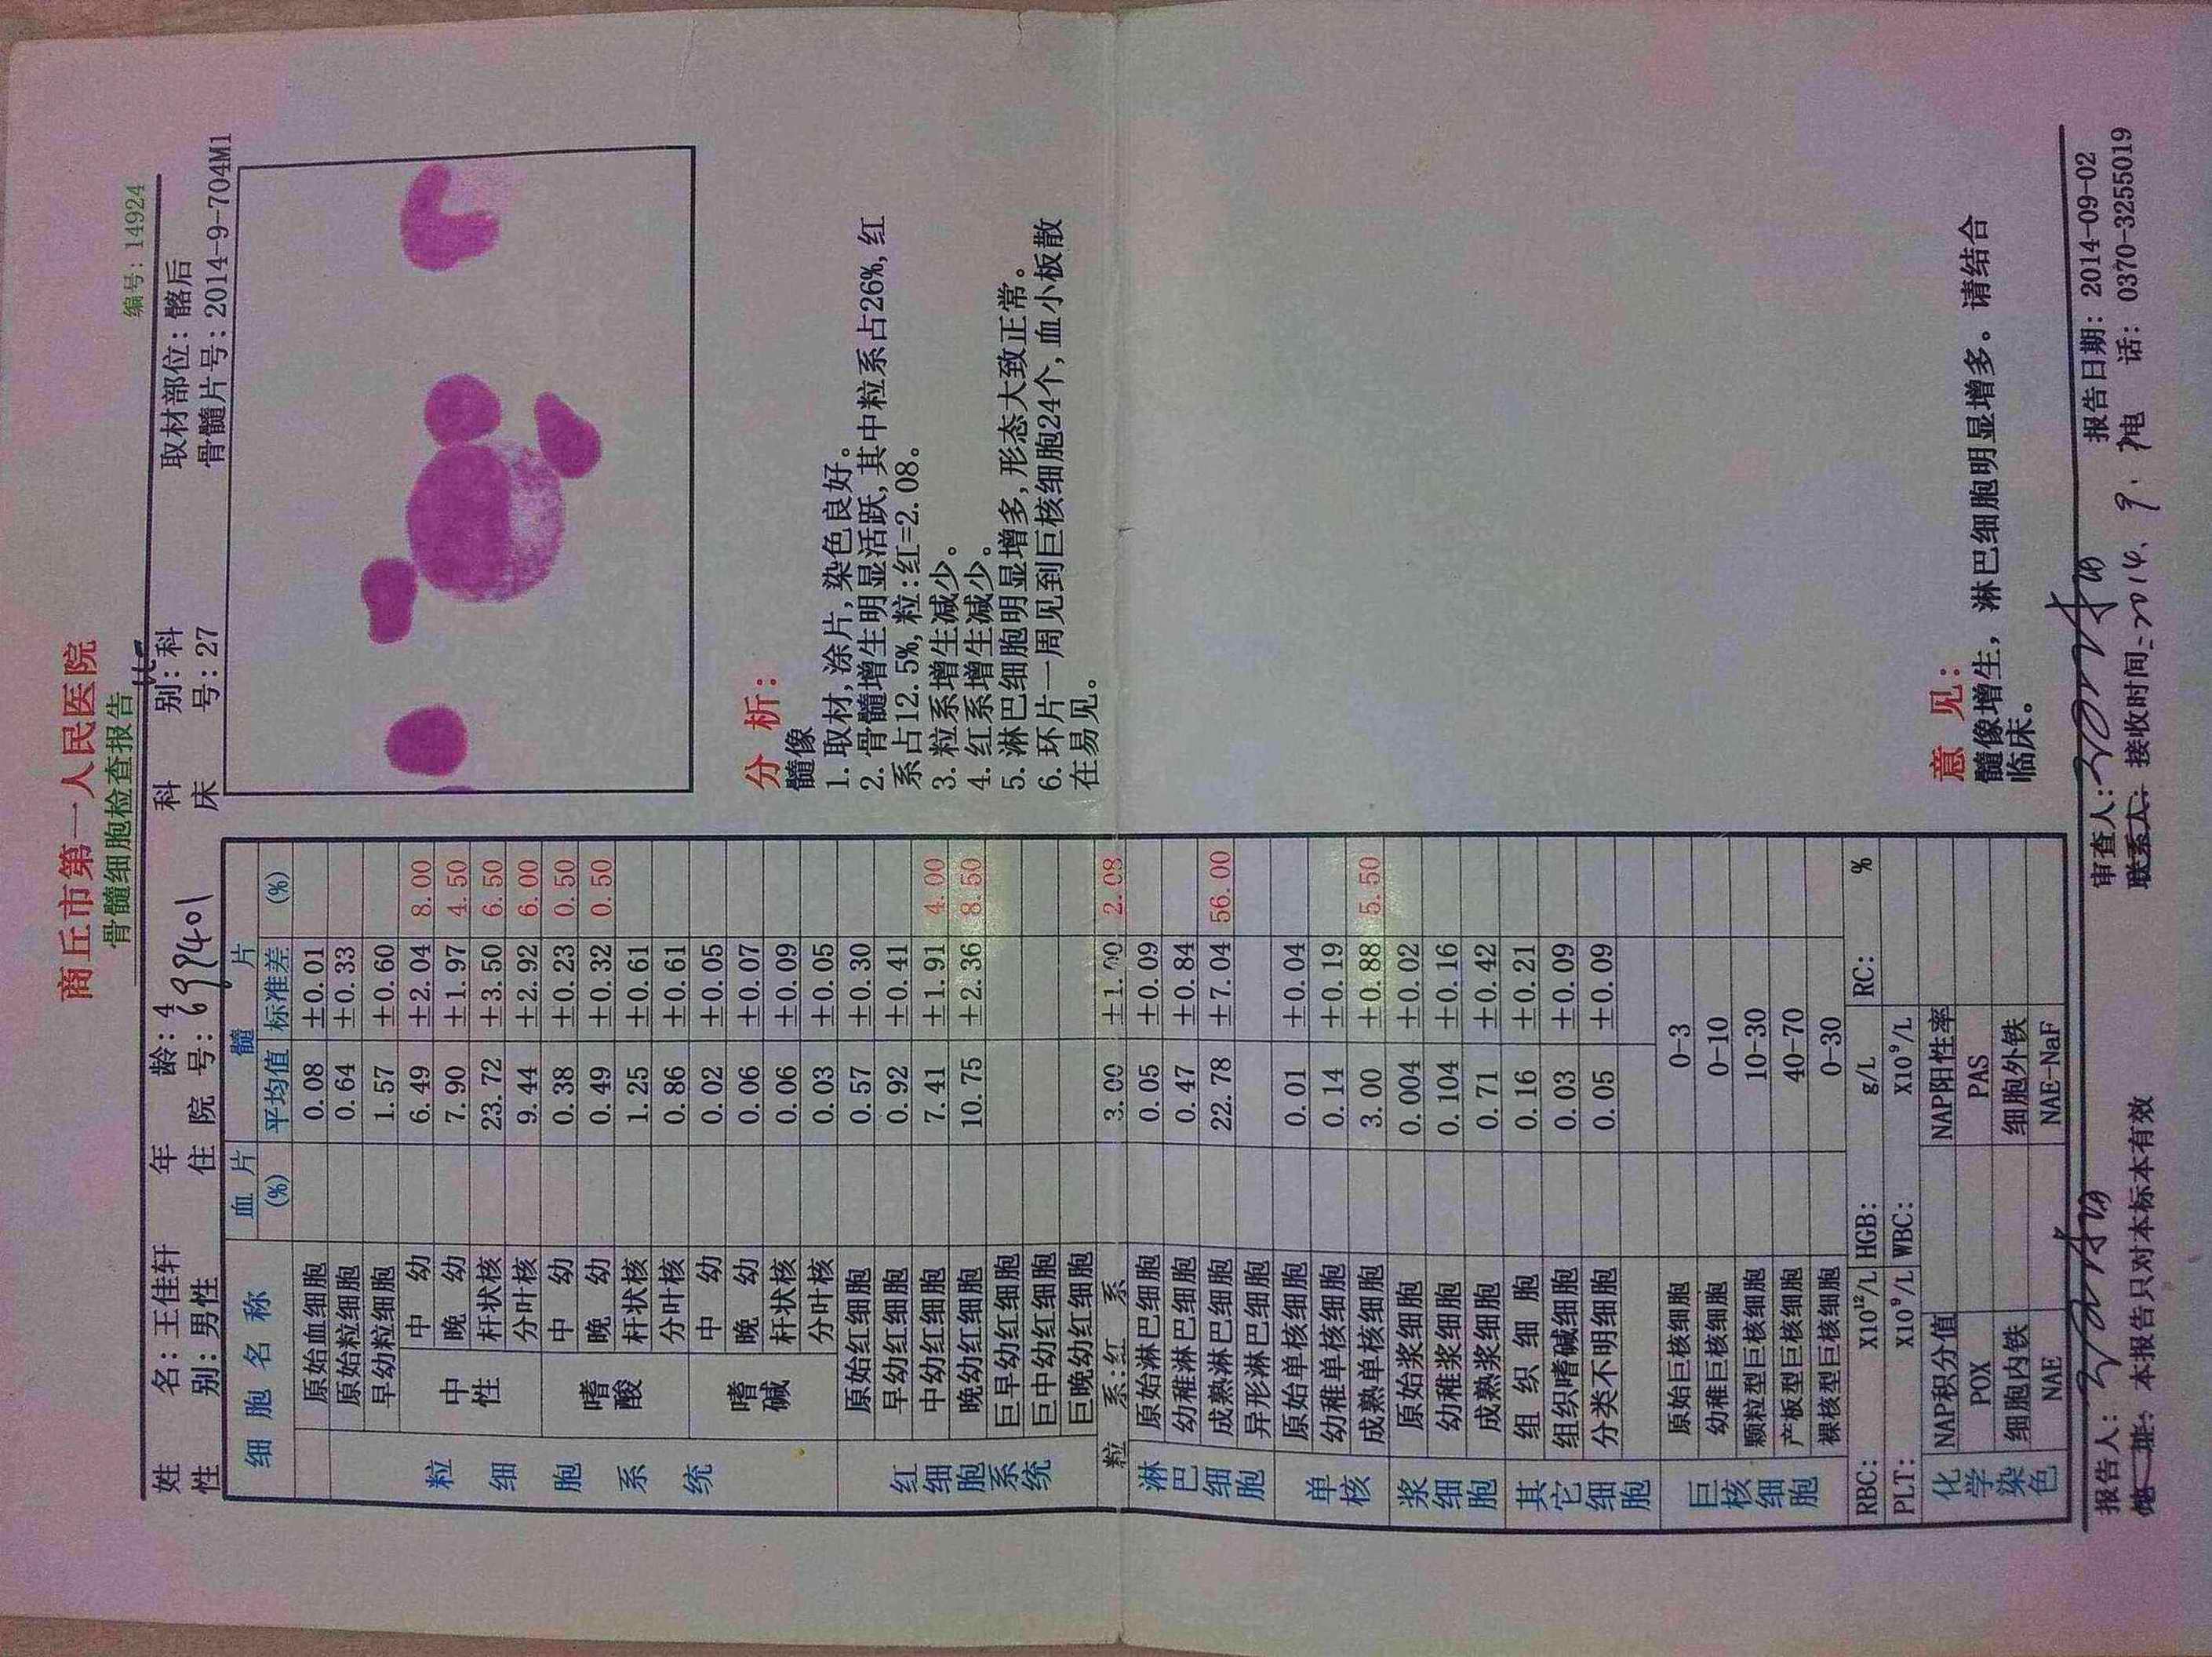 商丘市第一人民医院
骨髓细胞检查报告
编号:14924
姓 名:王佳轩 年 龄:4 科 别:科 取材部位:髂后
性 别:男性 住 院 号:699401 床 号:27 骨髓片号:2014-9-704M1
细 胞 名 称 血 片 髓 片
(%) 平均值 标准差 (%)
原始血细胞 0.08 ±0.01
粒 细 胞 系 统
原始粒细胞 0.64 ±0.33
早幼粒细胞 1.57 ±0.60
中性
中 幼 6.49 ±2.04 8.00
晚 幼 7.90 ±1.97 4.50
杆状核 23.72 ±3.50 6.50
分叶核 9.44 ±2.92 6.00
嗜酸
中 幼 0.38 ±0.23 0.50
晚 幼 0.49 ±0.32 0.50
杆状核 1.25 ±0.61
分叶核 0.86 ±0.61
嗜碱
中 幼 0.02 ±0.05
晚 幼 0.06 ±0.07
杆状核 0.06 ±0.09
分叶核 0.03 ±0.05
红细胞系统
原始红细胞 0.57 ±0.30
早幼红细胞 0.92 ±0.41
中幼红细胞 7.41 ±1.91 4.00
晚幼红细胞 10.75 ±2.36 8.50
巨早幼红细胞
巨中幼红细胞
巨晚幼红细胞
粒 系:红 系 3.00 ±1.00 2.08
淋巴细胞
原始淋巴细胞 0.05 ±0.09
幼稚淋巴细胞 0.47 ±0.84
成熟淋巴细胞 22.78 ±7.04 56.00
异形淋巴细胞
单核
原始单核细胞 0.01 ±0.04
幼稚单核细胞 0.14 ±0.19
成熟单核细胞 3.00 ±0.88 5.50
浆细胞
原始浆细胞 0.004 ±0.02
幼稚浆细胞 0.104 ±0.16
成熟浆细胞 0.71 ±0.42
其它细胞
组 织 细 胞 0.16 ±0.21
组织嗜碱细胞 0.03 ±0.09
分类不明细胞 0.05 ±0.09
巨核细胞
原始巨核细胞 0-3
幼稚巨核细胞 0-10
颗粒型巨核细胞 10-30
产板型巨核细胞 40-70
裸核型巨核细胞 0-30
RBC: X10¹²/L HGB: g/L RC: %
PLT: X10⁹/L WBC: X10⁹/L
化学染色
NAP积分值 NAP阳性率
POX PAS
细胞内铁 细胞外铁
NAE NAE-NaF
分 析:
髓像
1.取材,涂片,染色良好。
2.骨髓增生明显活跃,其中粒系占26%,红
系占12.5%,粒:红=2.08。
3.粒系增生减少。
4.红系增生减少。
5.淋巴细胞明显增多,形态大致正常。
6.环片一周见到巨核细胞24个,血小板散
在易见。
意 见:
髓像增生,淋巴细胞明显增多。请结合
临床。
报告人: 审查人: 报告日期: 2014-09-02
本报告只对本标本有效 联系人: 接收时间: 2014、9. 电 话: 0370-3255019